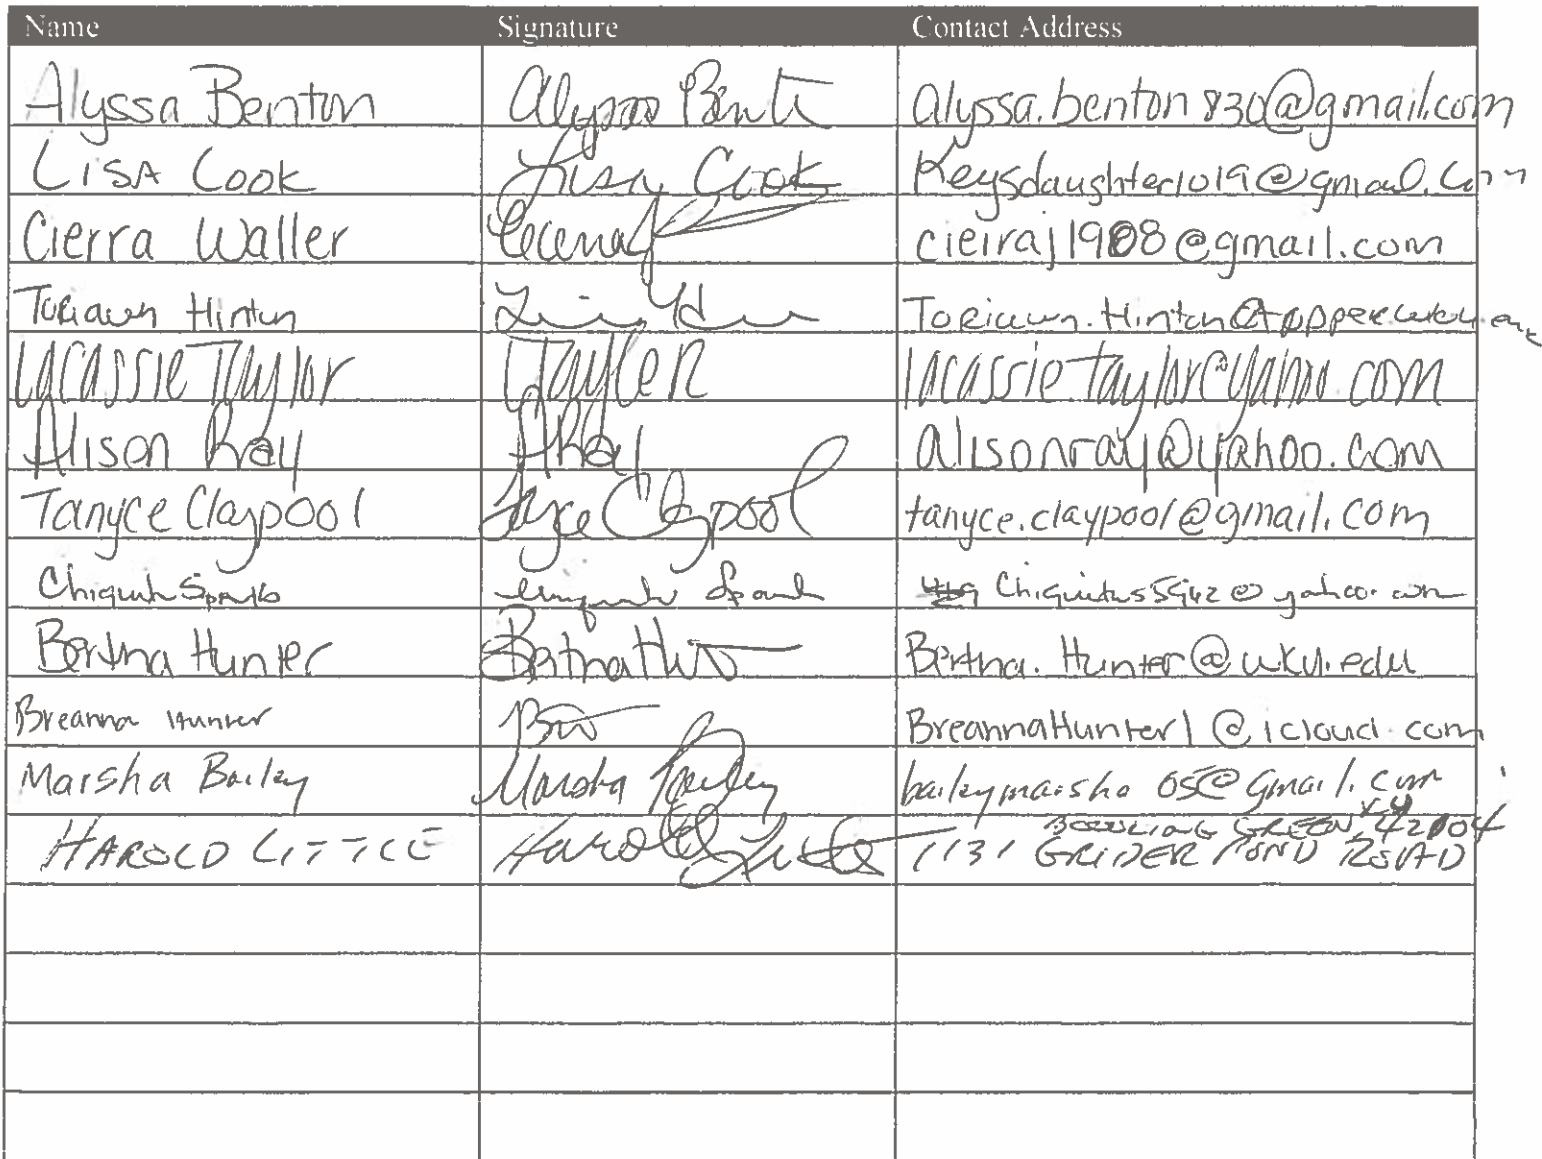 Name Signature Contact Address
Alyssa Benton Alyssa Bent alyssa.benton830@gmail.com
LISA Cook Lisa Cook Keysdaughter1019@gmail.com
Cierra Waller cieiraj1908@gmail.com
Toriawn Hinton Toriawn.Hinton@
Lacassie Taylor LTaylor lacassie.taylor@yahoo.com
Alison Ray ARay alisonray@yahoo.com
Tanyce Claypool Claypool tanyce.claypool@gmail.com
@yahoo.com
Bertha Hunter Bertha Bertha.Hunter@wku.edu
Breanna Hunter BreannaHunter1@icloud.com
Marsha Bailey Marsha Bailey baileymarsha05@gmail.com
BOWLING GREEN KY 42104
HAROLD LITTLE Harold Little 1131 GRIDER POND ROAD